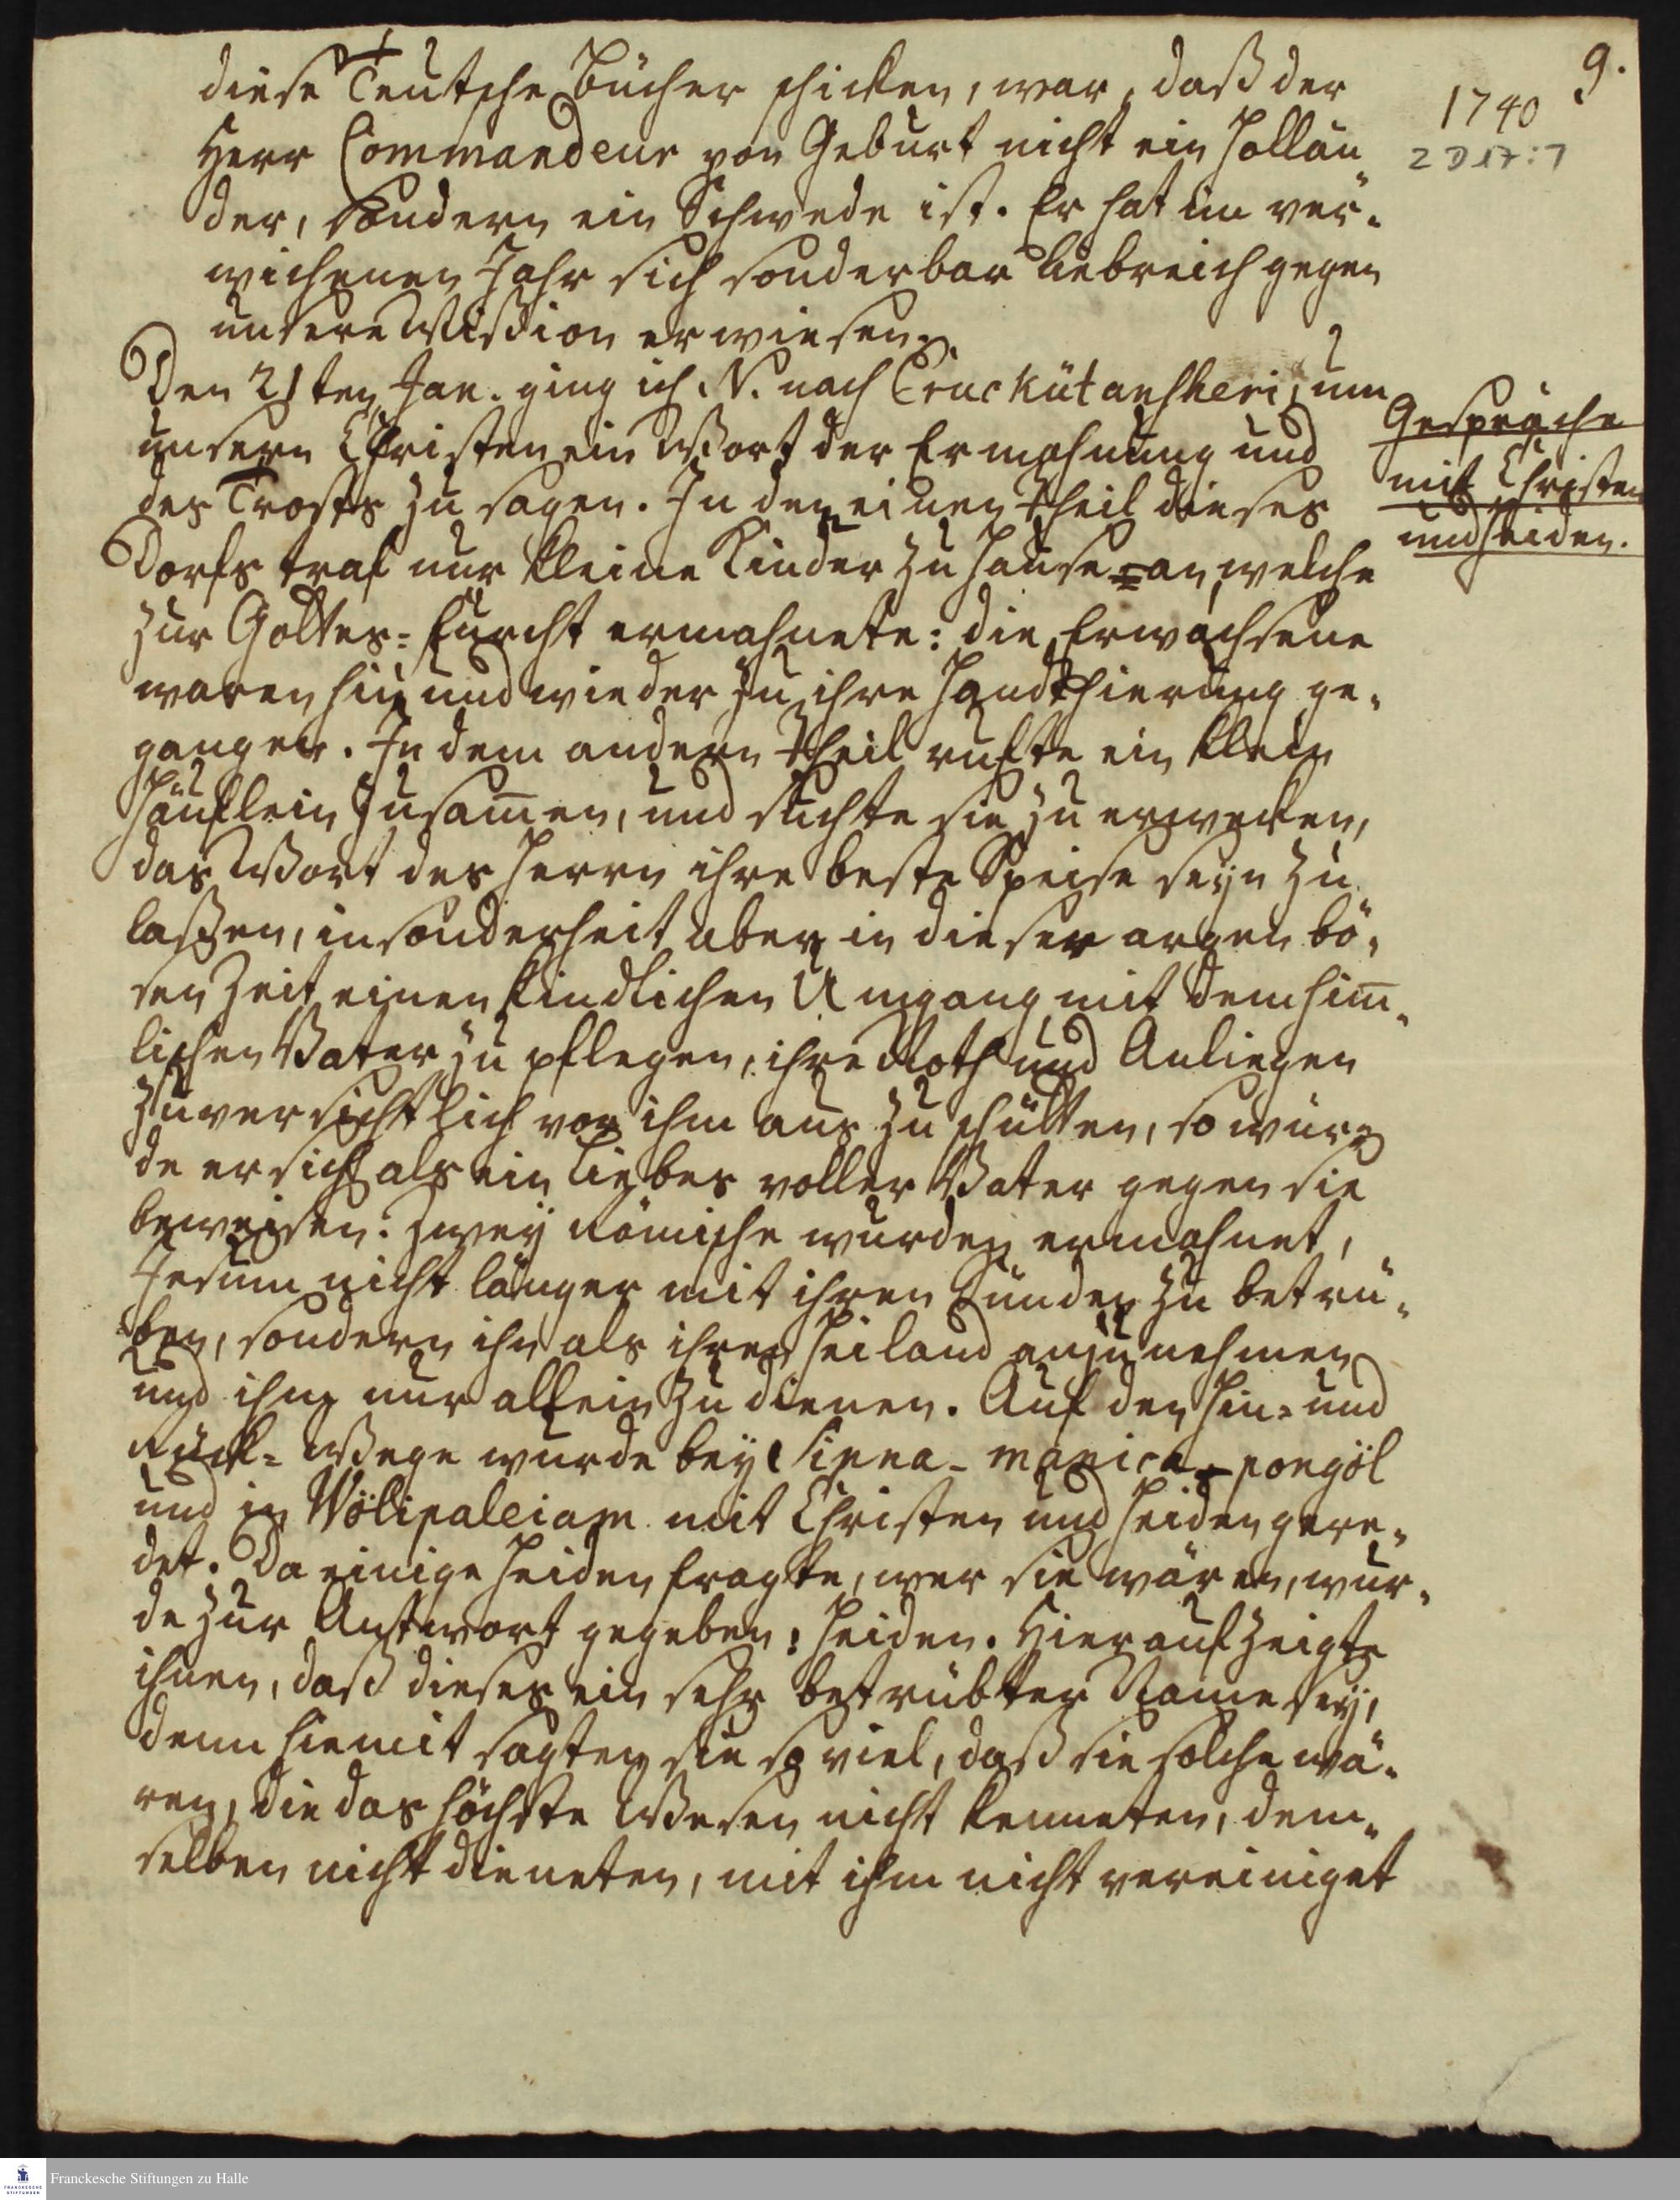 9.
1740
2 D 17:7
diese Teutsche Bücher schicken, war, daß der
Herr Commandeur von Geburt nicht ein Hollän„
der, sondern ein Schwede ist. Er hat im ver„
wichenen Jahr sich sonderbar liebreich gegen
unsere Mission erwiesen.
Den 21ten Jan. ging ich N. nach Eruckütansheri, um
unsern Christen ein Wort der Ermahnung und
des Trosts zu sagen. In den einen Theil dieses
Dorfs traf nur kleine Kinder zu Hause an, welche
zur Gottes-Furcht ermahnete: die Erwachsene
waren hin und wieder zu ihre Handthierung ge„
gangen. In dem andern Theil rufte ein klein
Häuflein zusam̅en, und suchte sie zu erwecken,
das Wort des Herrn ihre beste Speise seyn zu
laßen, insonderheit aber in dieser argen bö„
sen Zeit einen kindlichen Umgang mit dem him̅„
lischen Vater zu pflegen, ihre Noth und Anliegen
zuversichtlich vor ihm aus zu schütten, so wür„
de er sich als ein Liebes voller Vater gegen sie
beweisen. Zwey Römische wurden ermahnet,
Jesum nicht länger mit ihren Sünden zu betrü„
ben, sondern ihn als ihren Heiland anzunehmen
und ihm nur allein zu dienen. Auf den Hin- und
Rück-Wege wurde bey Sinna-manica-pongöl
und in Wölipaleiam mit Christen und Heiden gere„
det. Da einige Heiden fragte, wer sie wären, wur„
de zur Antwort gegeben: Heiden. Hierauf zeigte
ihnen, daß dieses ein sehr betrübter Name sey,
denn hiemit sagten sie so viel, daß sie solche wä„
ren, die das höchste Wesen nicht kenneten, dem„
selben nicht dieneten, mit ihm nicht vereiniget
Gespräche
mit Christen
und Heiden.
Franckesche Stiftungen zu Halle